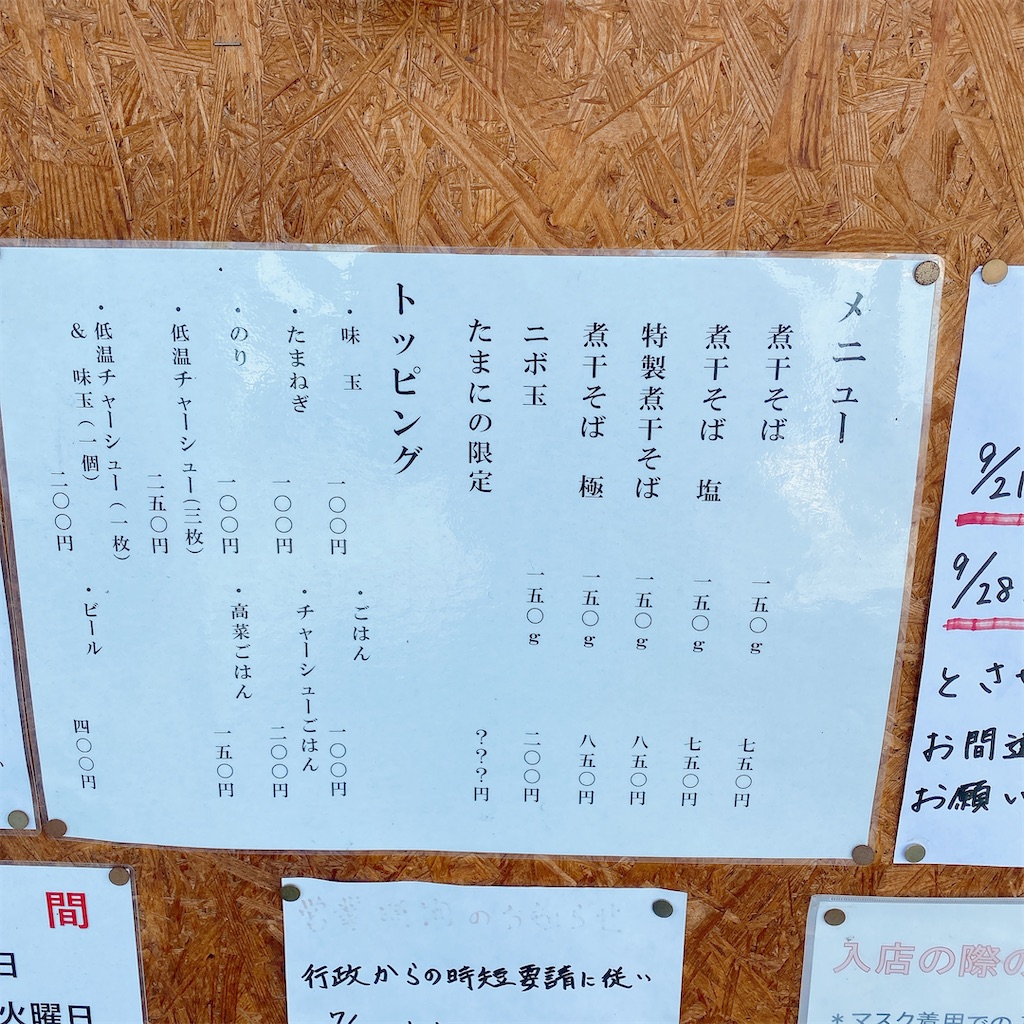 メニュー
煮干そば 一五〇g 七五〇円
煮干そば 塩 一五〇g 七五〇円
特製煮干そば 一五〇g 八五〇円
煮干そば 極 一五〇g 八五〇円
ニボ玉 一五〇g 二〇〇円
たまにの限定 ???円
トッピング
・味 玉 一〇〇円
・たまねぎ 一〇〇円
・のり 一〇〇円
・低温チャーシュー(三枚) 二五〇円
・低温チャーシュー(一枚)
& 味玉(一個) 二〇〇円
・ごはん 一〇〇円
・チャーシューごはん 二〇〇円
・高菜ごはん 一五〇円
・ビール 四〇〇円
9/21
9/28
とさ
お間
お願い
間
日
火曜日
行政からの時短要請に従い
7/
入店の際の
*マスク着用での